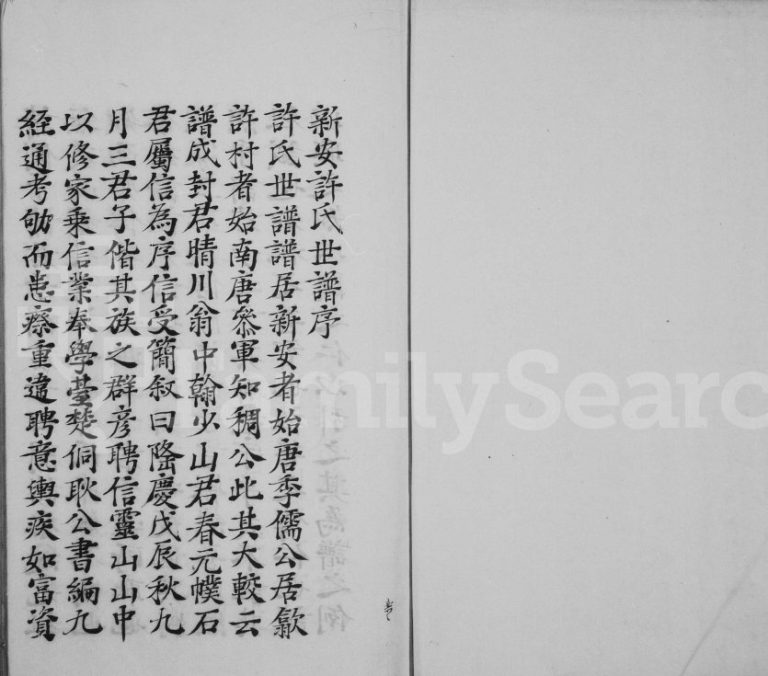 新安許氏世譜序
許氏世譜譜居新安者始唐季儒公居歙
許村者始南唐叅軍知稠公此其大較云
譜成封君晴川翁中翰少山君春元幞石
君屬信為序信受簡叙曰隆慶戊辰秋九
月三君子偕其族之群彥聘信靈山山中
以修家乘信業奉學臺楚侗耿公書編九
経通考劬而患瘵重違聘意輿疾如富資
FamilySearch